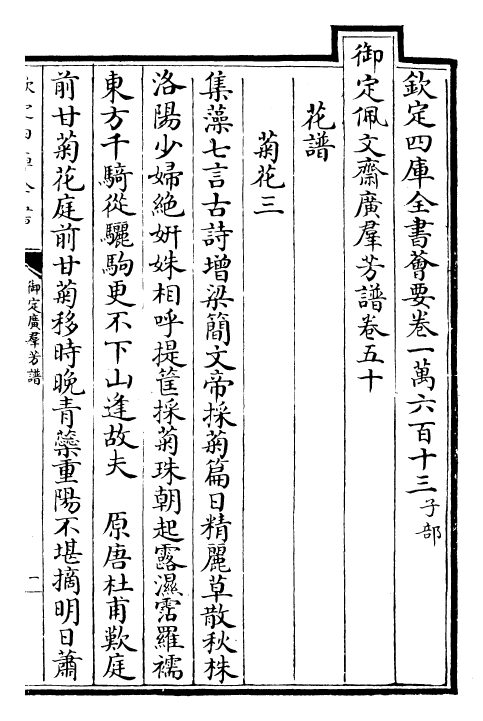 欽定四庫全書薈要卷一萬六百十三子部
御定佩文齋廣羣芳譜卷五十
花譜
菊花三
集藻七言古詩增梁簡文帝採菊篇日精麗草散秋株
洛陽少婦絶妍姝相呼提筐採菊珠朝起露濕霑羅襦
東方千騎從驪駒更不下山逢故夫 原唐杜甫歎庭
前甘菊花庭前甘菊移時晚青蘂重陽不堪摘明日蕭
御定廣羣芳譜
一